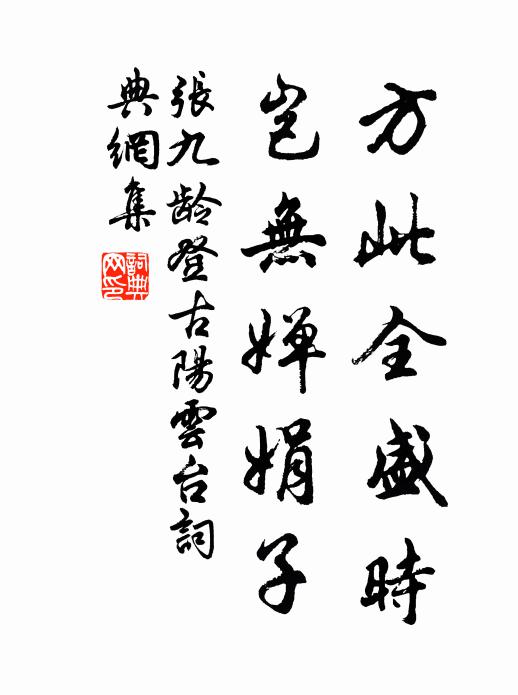 方此全盛時
豈無嬋娟子
張九龄登古陽雲台詞
典網集
詞典网印